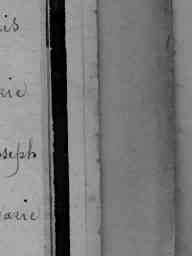 is
rie
oseph
arie